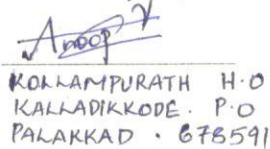 Anoop V
KOLLAMPURATH H.O
KALLADIKKODE. P.O
PALAKKAD. 678591